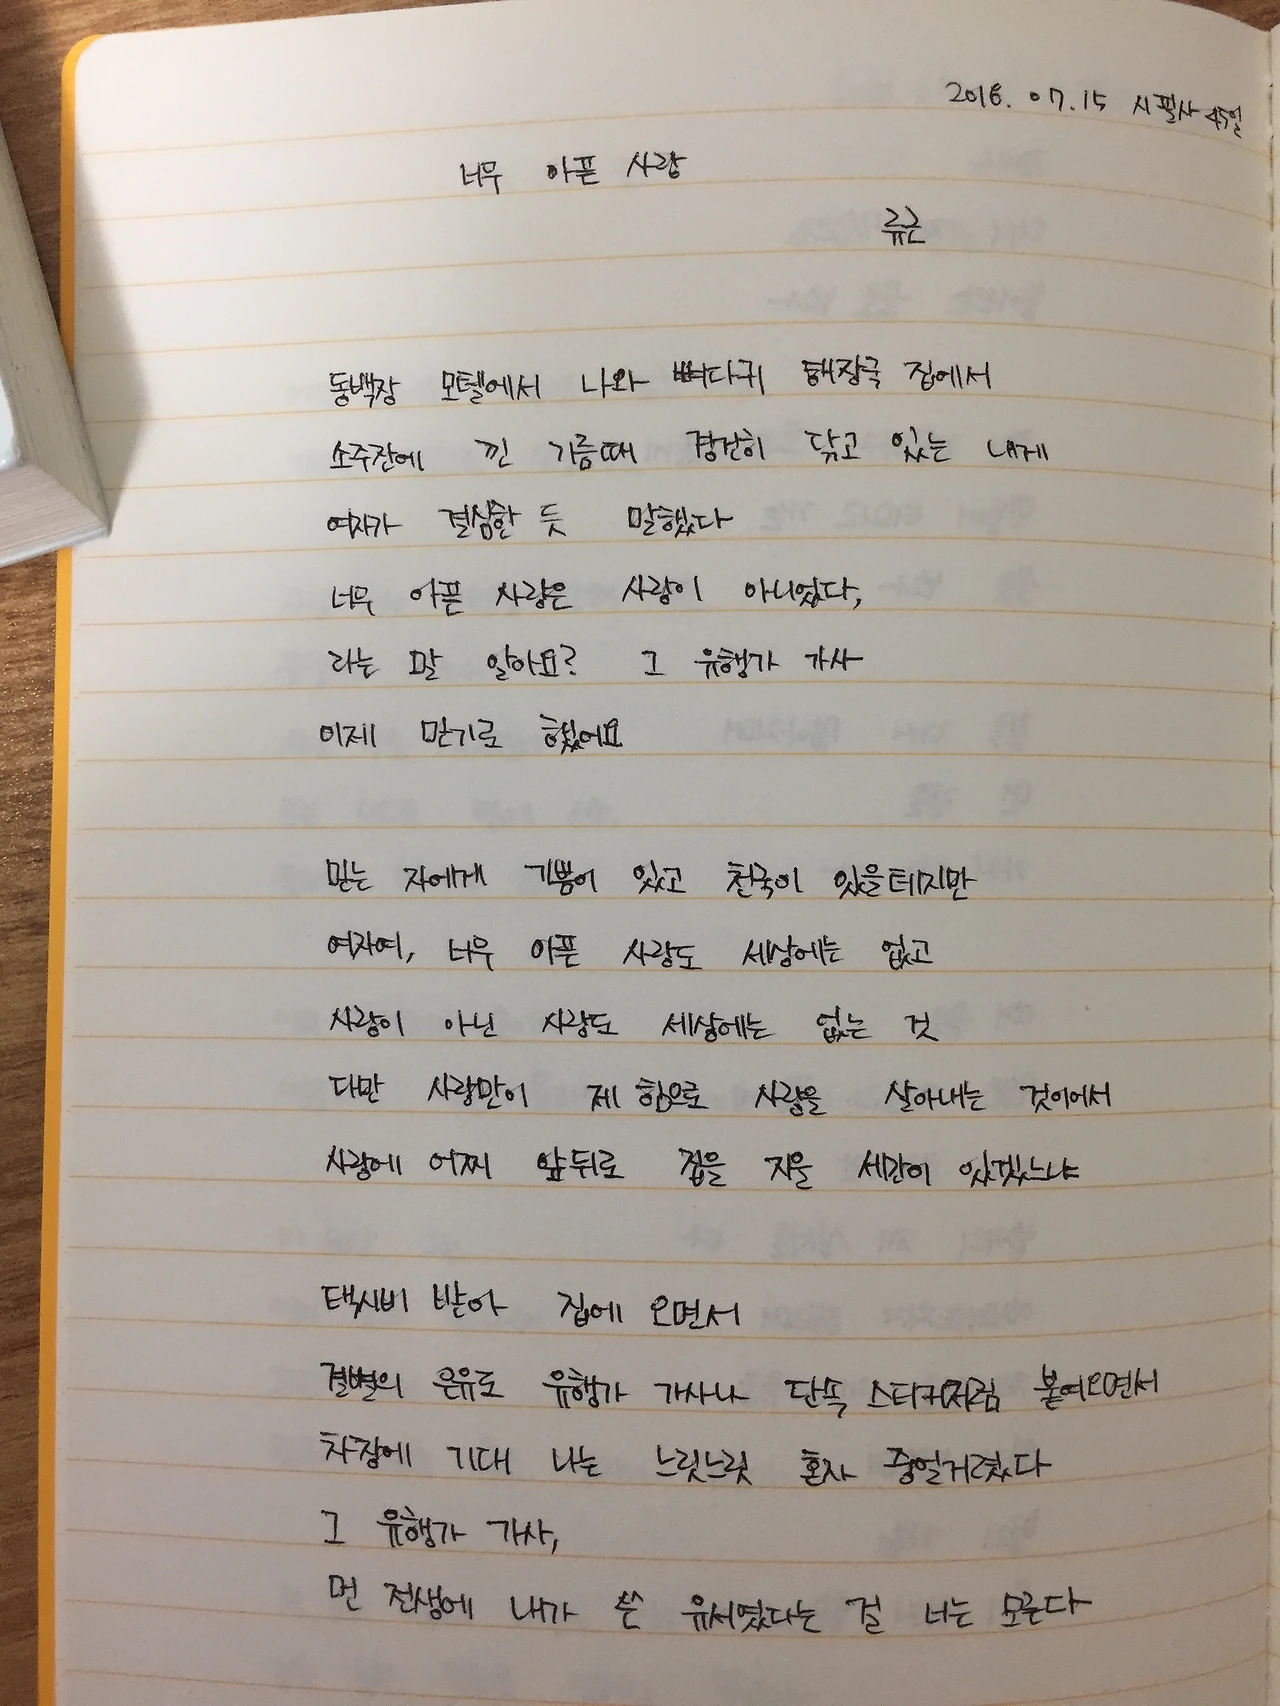 2016. 07.15 시필사 45일
너무 아픈 사랑
류근
동백장 모텔에서 나와 뼈다귀 해장국 집에서
소주잔에 낀 기름때 경건히 닦고 있는 내게
여자가 결심한 듯 말했다
너무 아픈 사랑은 사랑이 아니었다,
라는 말 알아요? 그 유행가 가사
이제 믿기로 했어요
믿는 자에게 기쁨이 있고 천국이 있을테지만
여자여, 너무 아픈 사랑도 세상에는 없고
사랑이 아닌 사랑도 세상에는 없는 것
다만 사랑만이 제 힘으로 사랑을 살아내는 것이어서
사랑에 어찌 앞뒤로 집을 지을 세간이 있겠느냐
택시비 받아 집에 오면서
결별의 은유로 유행가 가사나 단속 스티커처럼 붙여오면서
차창에 기대 나는 느릿느릿 혼자 중얼거렸다
그 유행가 가사,
먼 전생에 내가 쓴 유서였다는 걸 너는 모른다